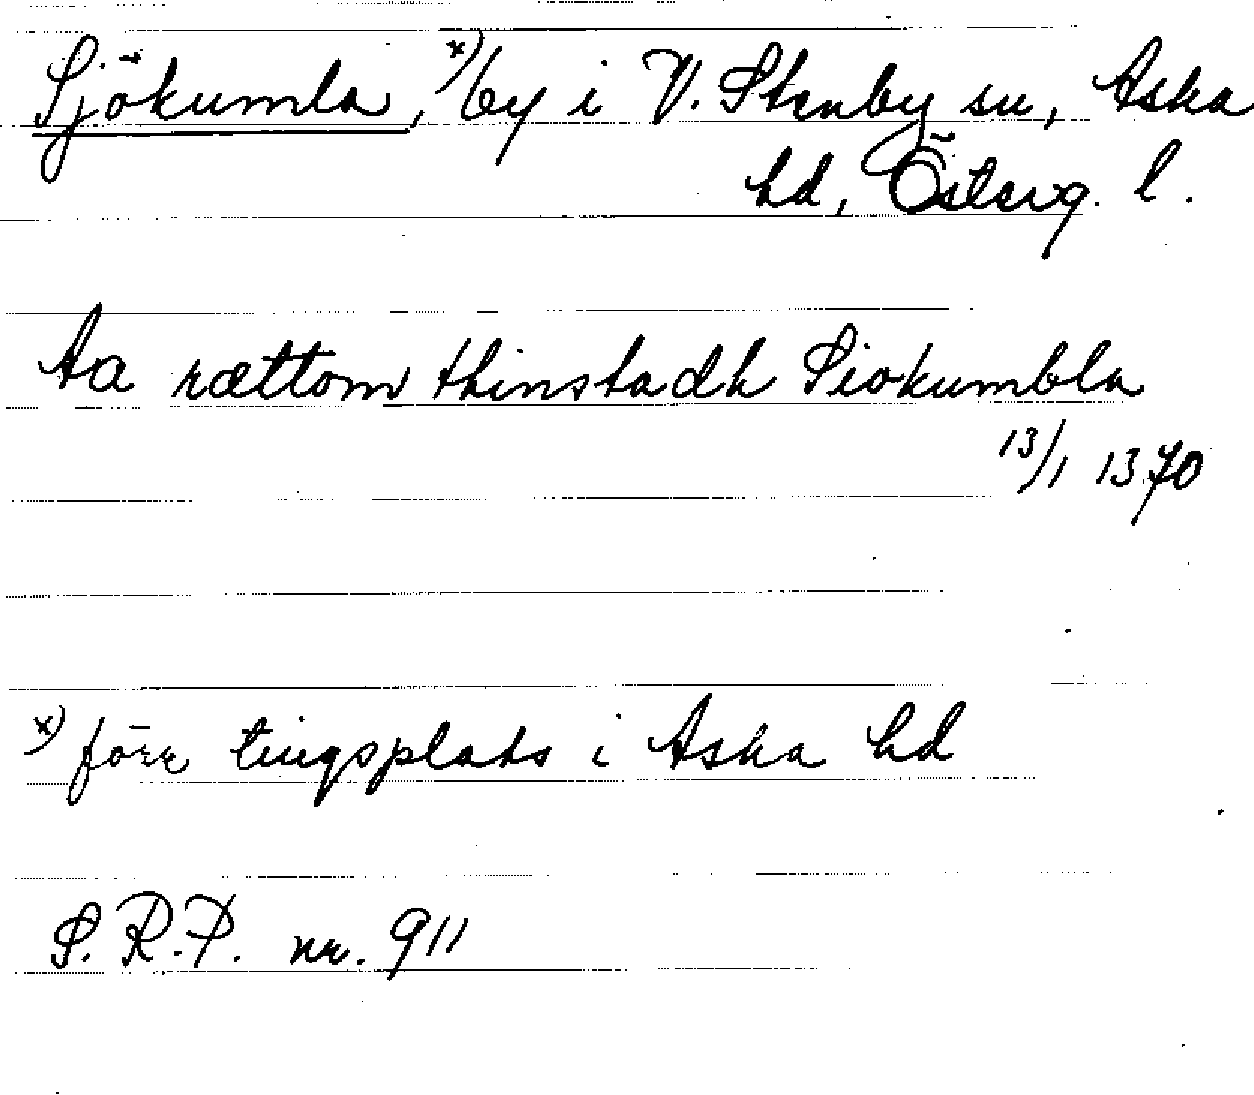 Sjökumla, x) by i V. Stenby sn, Aska
hd, Österg. l.
Aa rættom thinstadh Siokumbla
13/1 1370
x) förr tingsplats i Aska hd
S.R.P. nr. 911